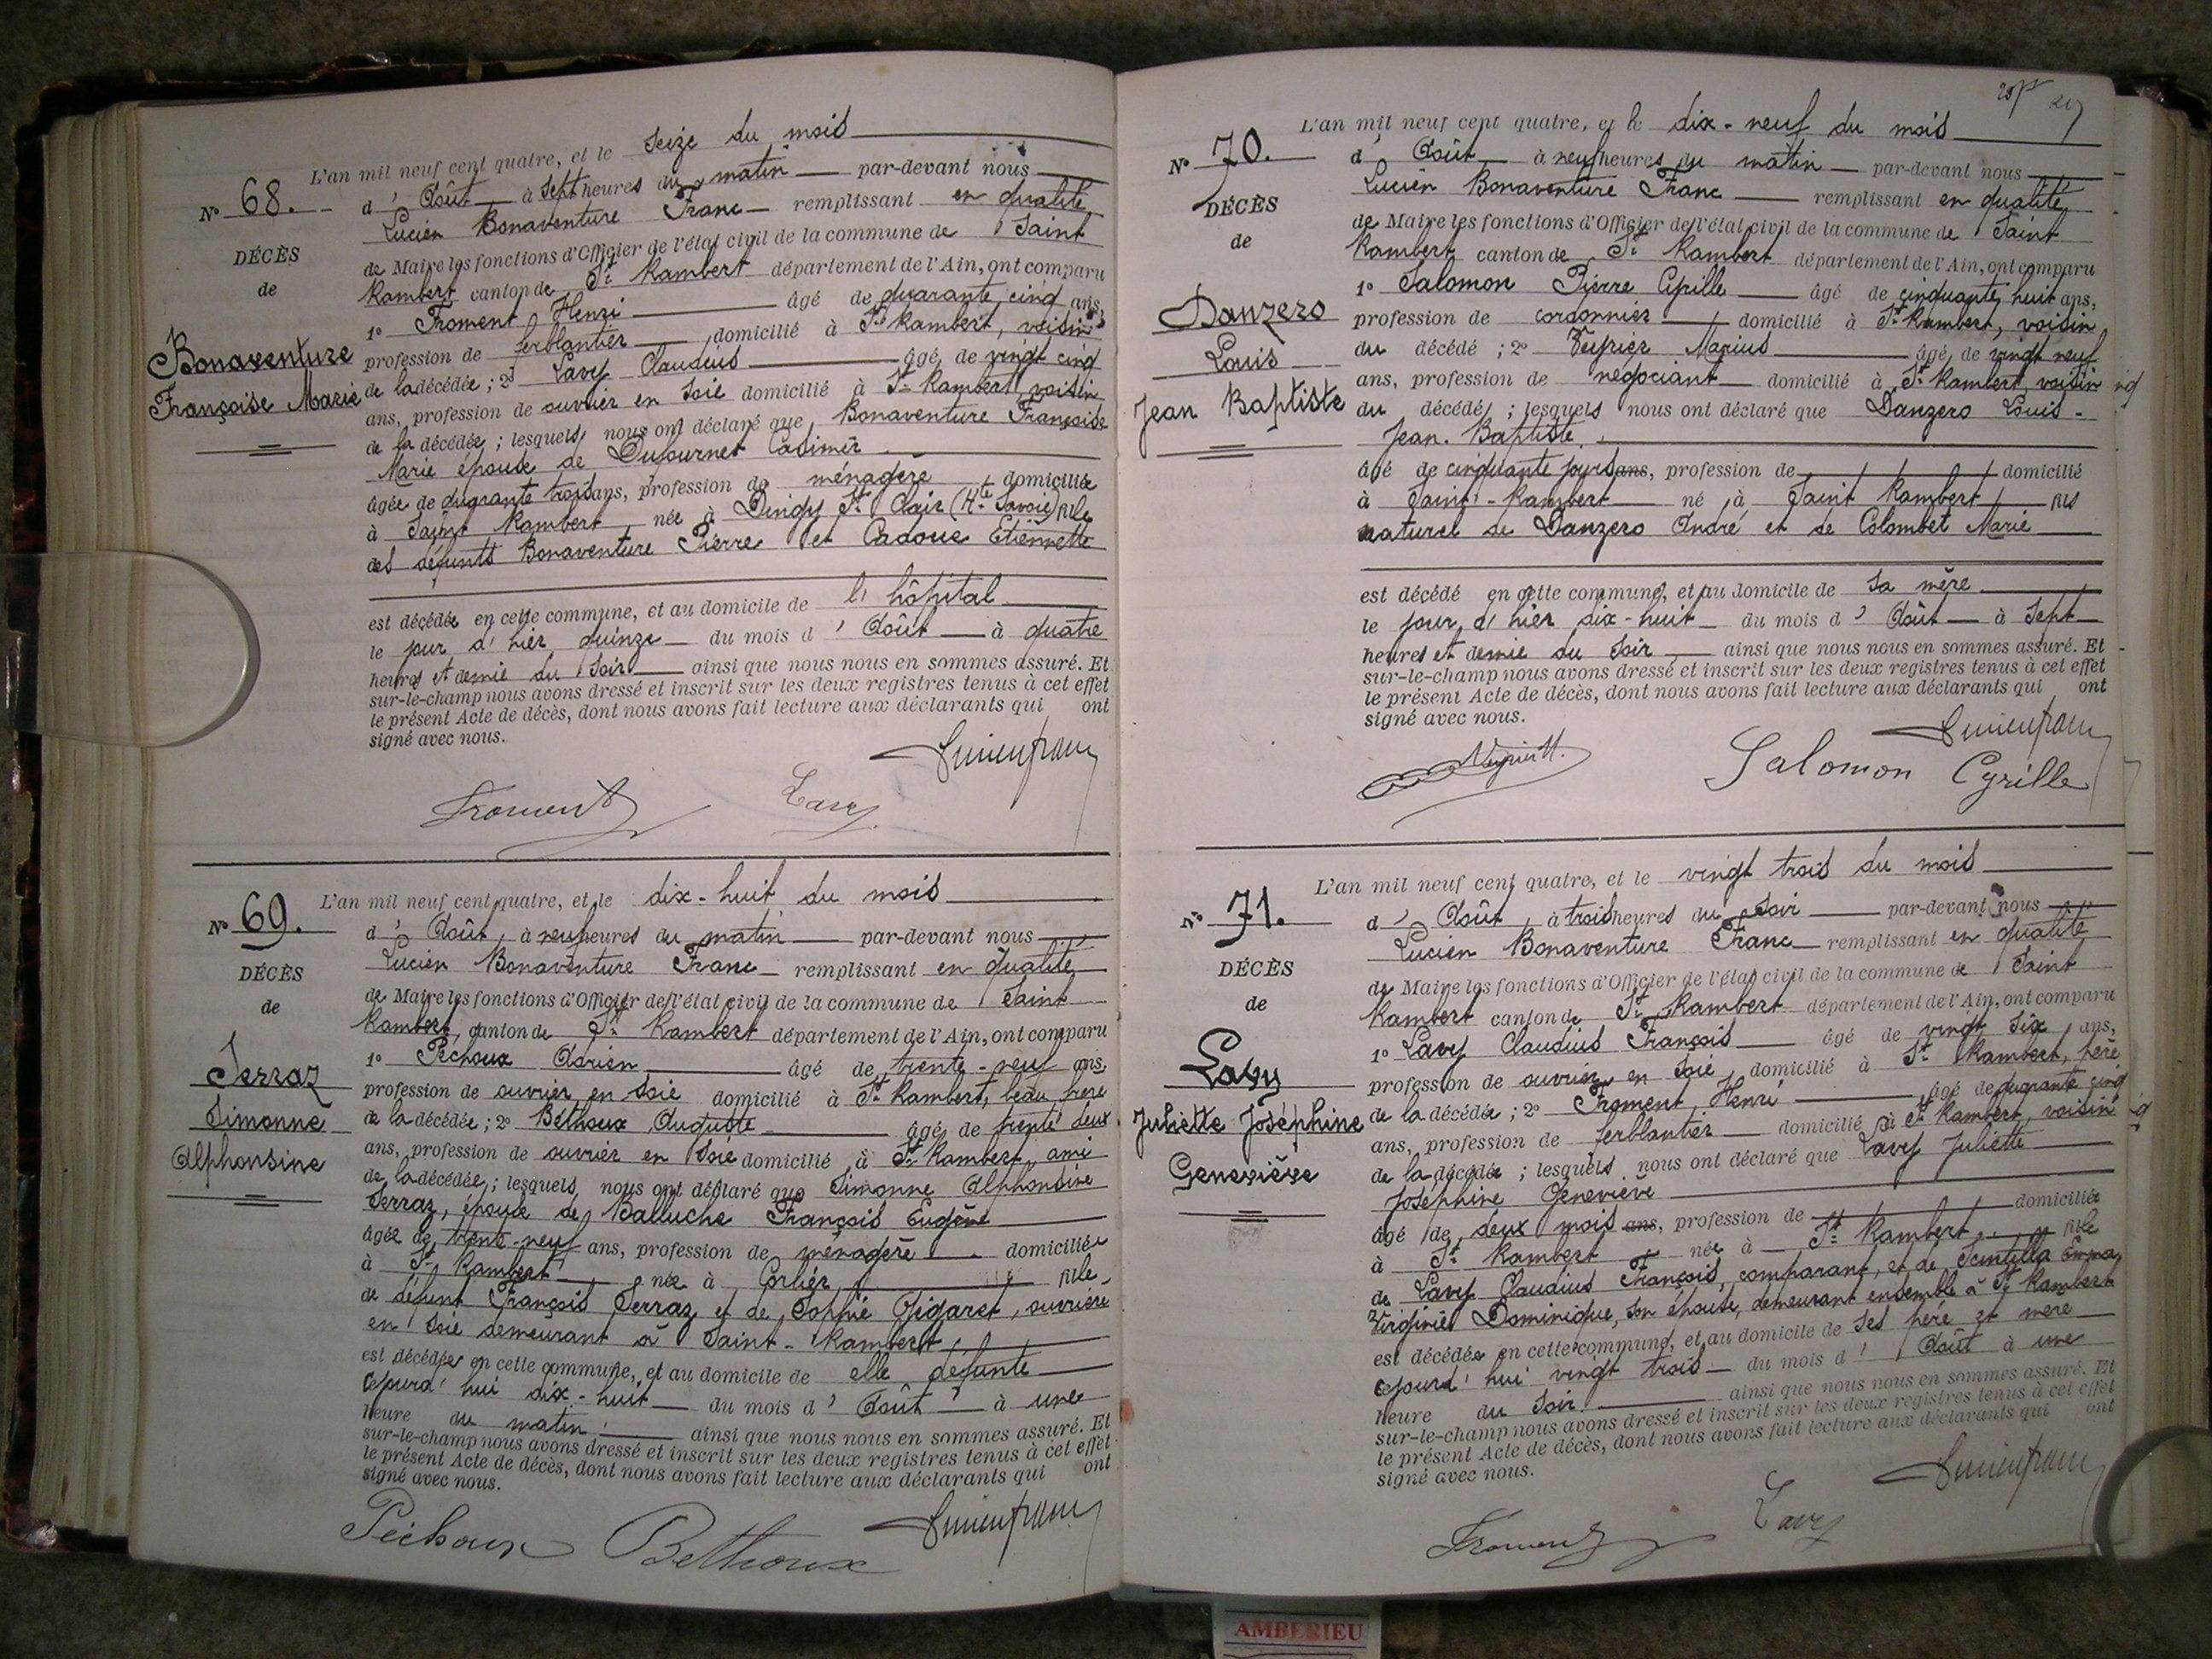 L'an mil neuf cent quatre, et le seize du mois
N° 68.
d'Août à sept heures du matin par-devant nous
Lucien Bonaventure Franc remplissant en qualité
DÉCÈS
de Maire les fonctions d'Officier de l'état civil de la commune de Saint
de
Rambert canton de St Rambert département de l'Ain, ont comparu
1° Froment Henri âgé de quarante cinq ans,
Bonaventure
profession de ferblantier domicilié à St Rambert, voisin
Françoise Marie
de la décédée; 2° Lavy Claudius âgé de vingt cinq
ans, profession de ouvrier en soie domicilié à St Rambert, voisin
de la décédée; lesquels nous ont déclaré que Bonaventure Françoise
Marie épouse de Dufournet Casimir
âgée de quarante trois ans, profession de ménagère domiciliée
à Saint Rambert née à Dingy St Clair (Hte Savoie) fille
des défunts Bonaventure Pierre et Cadoux Etiennette
est décédée en cette commune, et au domicile de l'hôpital
le jour d'hier quinze du mois d'Août à quatre
heures et demie du soir ainsi que nous nous en sommes assuré. Et
sur-le-champ nous avons dressé et inscrit sur les deux registres tenus à cet effet
le présent Acte de décès, dont nous avons fait lecture aux déclarants qui ont
signé avec nous.
Froment Lavy
L'an mil neuf cent quatre, et le dix-huit du mois
N° 69.
d'Août à neuf heures du matin par-devant nous
Lucien Bonaventure Franc remplissant en qualité
DÉCÈS
de Maire les fonctions d'Officier de l'état civil de la commune de Saint
de
Rambert, canton de St Rambert département de l'Ain, ont comparu
1° Péchoux Adrien âgé de trente-neuf ans,
Serraz
profession de ouvrier en soie domicilié à St Rambert, beau frère
Simonne
de la décédée; 2° Béthoux Auguste âgé de trente deux
Alphonsine
ans, profession de ouvrier en soie domicilié à St Rambert, ami
de la décédée; lesquels nous ont déclaré que Simonne Alphonsine
Serraz, épouse de Balluche François Eugène
âgée de trente-neuf ans, profession de ménagère domiciliée
à St Rambert née à Corlier fille
de défunt François Serraz et de Sophie Gigaret, ouvrière
en soie demeurant à Saint-Rambert
est décédée en cette commune, et au domicile de elle défunte
cejourd'hui dix-huit du mois d'Août à une
heure du matin ainsi que nous nous en sommes assuré. Et
sur-le-champ nous avons dressé et inscrit sur les deux registres tenus à cet effet
le présent Acte de décès, dont nous avons fait lecture aux déclarants qui ont
signé avec nous.
Péchoux Bethoux
L'an mil neuf cent quatre, et le dix-neuf du mois
N° 70.
d'Août à neuf heures du matin par-devant nous
Lucien Bonaventure Franc remplissant en qualité
DÉCÈS
de Maire les fonctions d'Officier de l'état civil de la commune de Saint
de
Rambert canton de St Rambert département de l'Ain, ont comparu
1° Salomon Pierre Cyrille âgé de cinquante huit ans,
Danzero
profession de cordonnier domicilié à St Rambert, voisin
Louis
du décédé; 2° Veyrier Marius âgé de vingt neuf
ans, profession de négociant domicilié à St Rambert, voisin
Jean Baptiste
du décédé; lesquels nous ont déclaré que Danzero Louis-
Jean-Baptiste
âgé de cinquante jours ans, profession de domicilié
à Saint-Rambert né à Saint Rambert fils
naturel de Danzero André et de Colombet Marie
est décédé en cette commune, et au domicile de sa mère
le jour d'hier dix-huit du mois d'Août à sept
heures et demie du soir ainsi que nous nous en sommes assuré. Et
sur-le-champ nous avons dressé et inscrit sur les deux registres tenus à cet effet
le présent Acte de décès, dont nous avons fait lecture aux déclarants qui ont
signé avec nous.
Veyrier M. Salomon Cyrille
L'an mil neuf cent quatre, et le vingt trois du mois
N° 71.
d'Août, à trois heures du soir par-devant nous
Lucien Bonaventure Franc remplissant en qualité
DÉCÈS
de Maire les fonctions d'Officier de l'état civil de la commune de Saint
de
Rambert canton de St Rambert département de l'Ain, ont comparu
1° Lavy Claudius François âgé de vingt six ans,
Lavy
profession de ouvrier en soie domicilié à St Rambert, père
Juliette Joséphine
de la décédée; 2° Froment Henri âgé de quarante cinq
ans, profession de ferblantier domicilié à St Rambert, voisin
Geneviève
de la décédée; lesquels nous ont déclaré que Lavy Juliette
Joséphine Geneviève
âgé de deux mois ans, profession de domiciliée
à St Rambert née à St Rambert fille
de Lavy Claudius François, comparant, et de Scintilla Emma
Virginie Dominique, son épouse, demeurant ensemble à St Rambert
est décédée en cette commune, et au domicile de ses père et mère
cejourd'hui vingt trois du mois d'Août à une
heure du soir ainsi que nous nous en sommes assuré. Et
sur-le-champ nous avons dressé et inscrit sur les deux registres tenus à cet effet
le présent Acte de décès, dont nous avons fait lecture aux déclarants qui ont
signé avec nous.
Froment Lavy
AMBERIEU